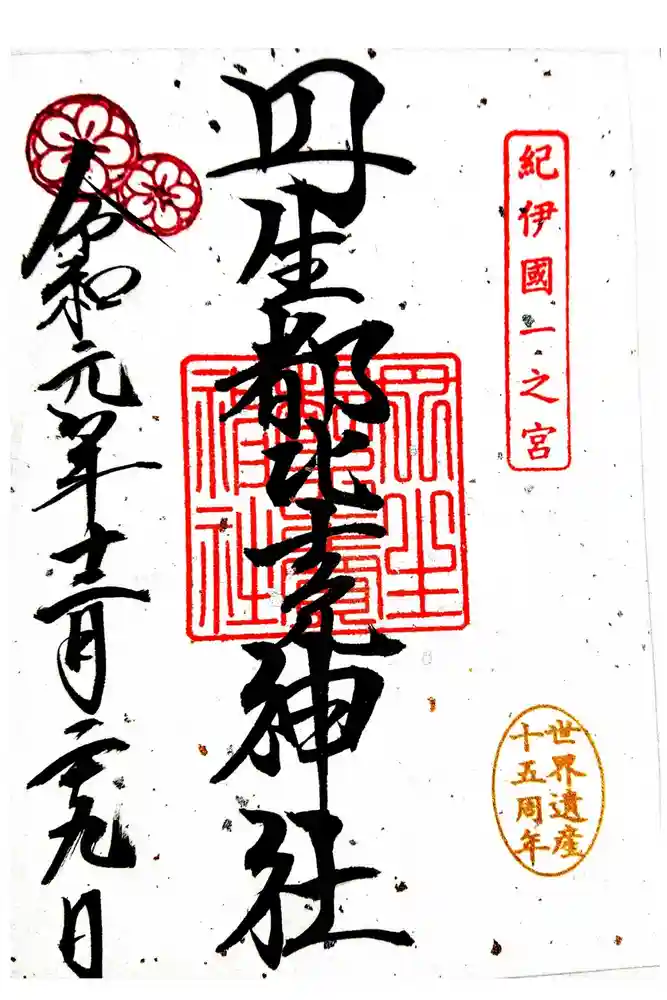 紀伊國一之宮
世界遺産
十五周年
丹生都比売神社
丹生
神社
令和元年十二月二十九日